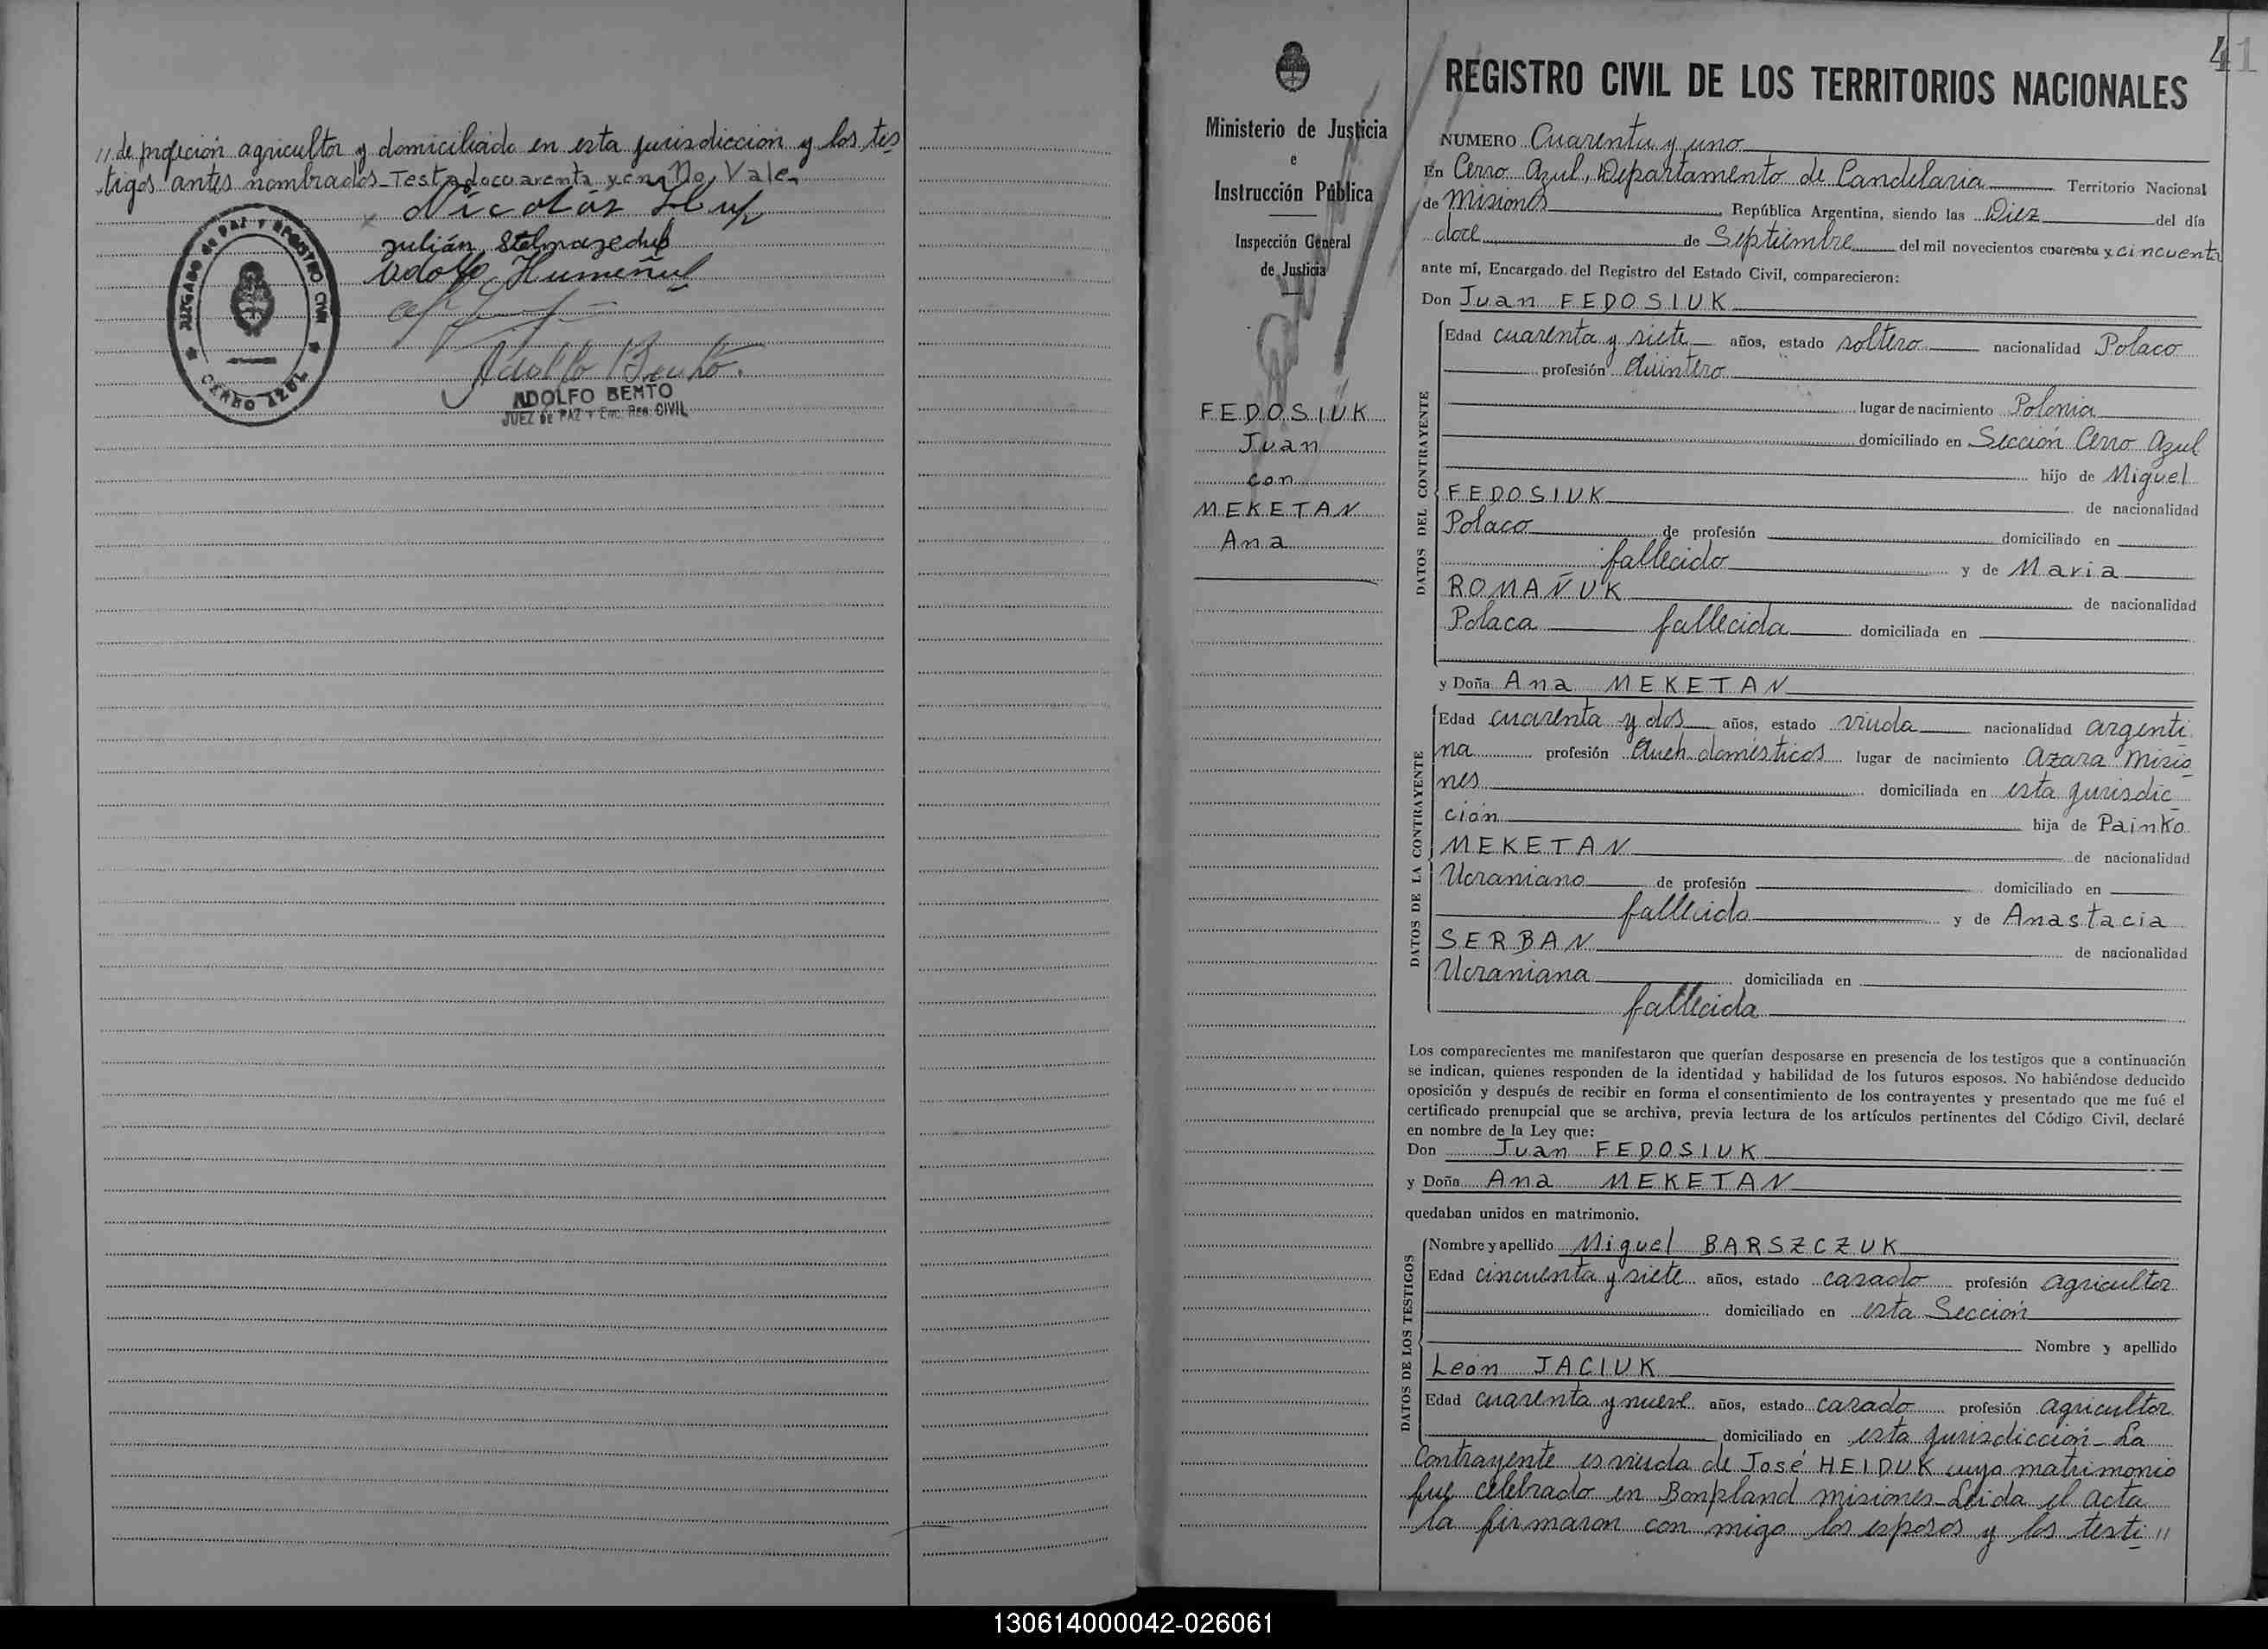 // de profeción agricultor y domiciliado en esta jurisdiccion y los tes
tigos antes nombrados - Testado cuarenta y en No, Vale.
Nicolas
Julián
Adolfo Humeñuk
Adolfo Bento.
ADOLFO BENTO
JUEZ DE PAZ Y Enc. Reg. CIVIL
JUZGADO de PAZ Y REGISTRO CIVIL
CERRO AZUL
41
Ministerio de Justicia
e
Instrucción Pública
Inspección General
de Justicia
FEDOSIUK
Juan
con
MEKETAN
Ana
REGISTRO CIVIL DE LOS TERRITORIOS NACIONALES
NUMERO Cuarenta y uno
En Cerro Azul, Departamento de Candelaria Territorio Nacional
de Misiones República Argentina, siendo las Diez del día
doce de Septiembre del mil novecientos cuarenta y cincuenta
ante mí, Encargado del Registro del Estado Civil, comparecieron:
Don Juan FEDOSIUK
DATOS DEL CONTRAYENTE
Edad cuarenta y siete años, estado soltero nacionalidad Polaco
profesión Quintero
lugar de nacimiento Polonia
domiciliado en Sección Cerro Azul
hijo de Miguel
FEDOSIUK de nacionalidad
Polaco de profesión domiciliado en
fallecido y de Maria
ROMAÑUK de nacionalidad
Polaca fallecida domiciliada en
y Doña Ana MEKETAN
DATOS DE LA CONTRAYENTE
Edad cuarenta y dos años, estado viuda nacionalidad argenti
na profesión Queh. domésticos lugar de nacimiento Azara Misio
nes domiciliada en esta jurisdic
ción hija de Painko
MEKETAN de nacionalidad
Ucraniano de profesión domiciliado en
fallecido y de Anastacia
SERBAN de nacionalidad
Ucraniana domiciliada en
fallecida
Los comparecientes me manifestaron que querían desposarse en presencia de los testigos que a continuación
se indican, quienes responden de la identidad y habilidad de los futuros esposos. No habiéndose deducido
oposición y después de recibir en forma el consentimiento de los contrayentes y presentado que me fué el
certificado prenupcial que se archiva, previa lectura de los artículos pertinentes del Código Civil, declaré
en nombre de la Ley que:
Don Juan FEDOSIUK
y Doña Ana MEKETAN
quedaban unidos en matrimonio.
DATOS DE LOS TESTIGOS
Nombre y apellido Miguel BARSZCZUK
Edad cincuenta y siete años, estado casado profesión agricultor
domiciliado en esta Sección
Nombre y apellido
León JACIUK
Edad cuarenta y nueve años, estado casado profesión agricultor
domiciliado en esta jurisdicción - La
Contrayente es viuda de José HEIDUK cuyo matrimonio
fue celebrado en Bonpland misiones - Leida el acta
la firmaron con migo los esposos y los testi //
130614000042-026061